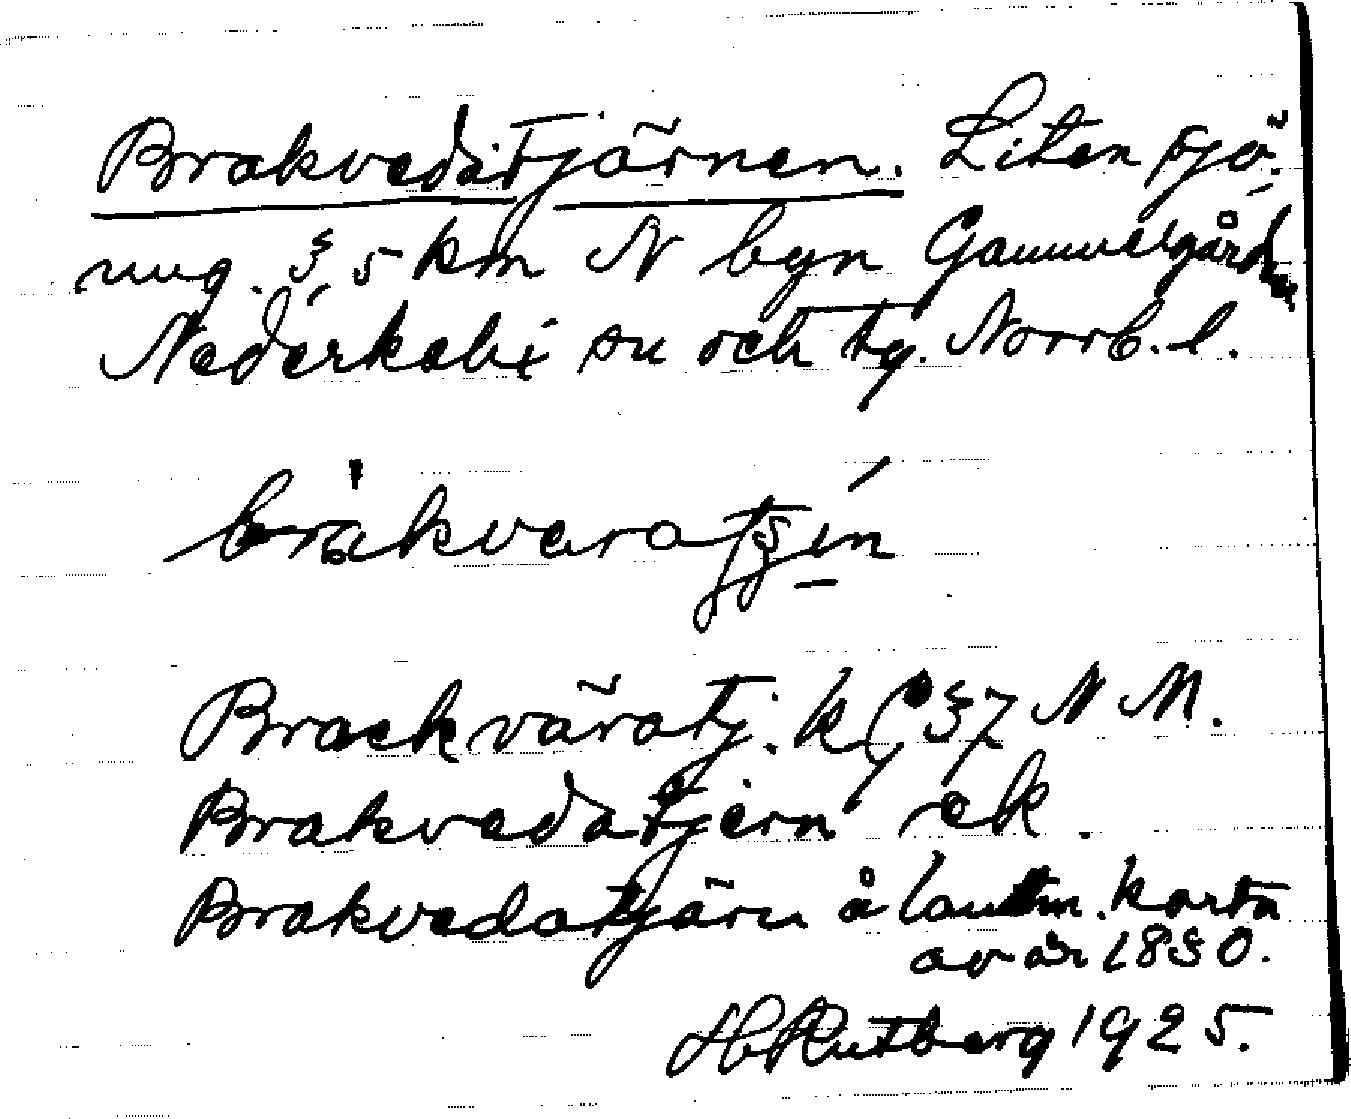 Brakvedatjärnen. Liten sjö.
ung. 3,5 km N byn Gammelgården
Nederkalix sn och tg. Norrb. l.
brakvaratjin
Brackväratj. k 37 N M.
Brakvedatjern ek.
Brakvedatjärn å lantm. karta
av år 1830.
H Rutberg 1925.